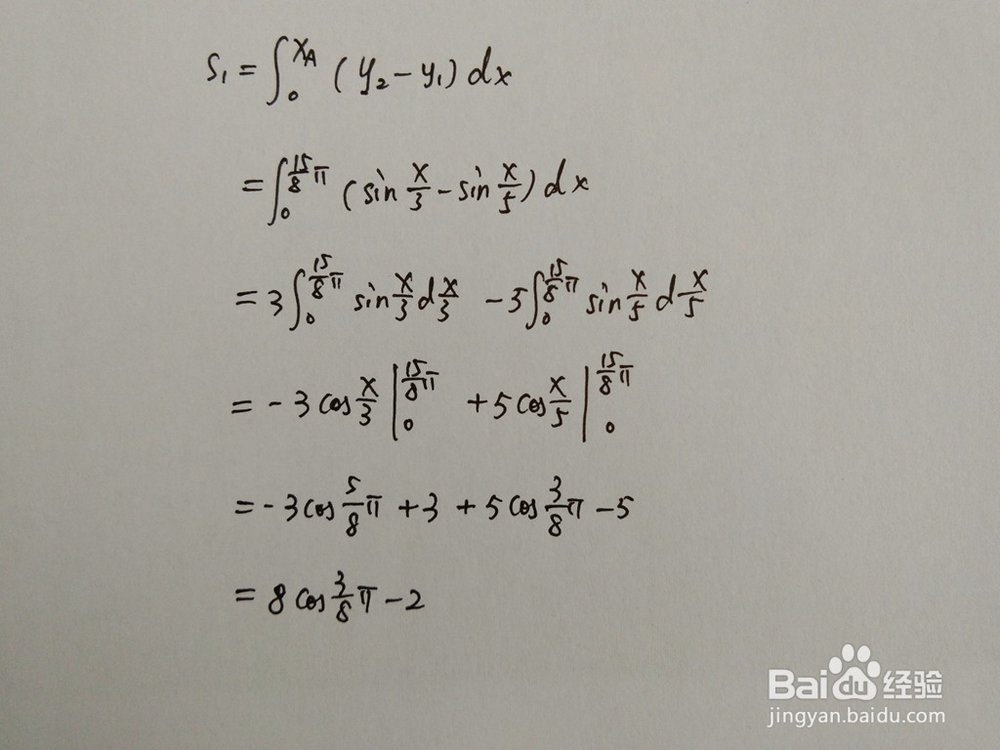 S₁ = ∫₀^{x_A} (y₂ - y₁) dx
= ∫₀^{15/8 π} (sin x/3 - sin x/5) dx
= 3∫₀^{15/8 π} sin x/3 d x/3 - 5∫₀^{15/8 π} sin x/5 d x/5
= - 3 cos x/3 |₀^{15/8 π} + 5 cos x/5 |₀^{15/8 π}
= - 3 cos 5/8 π + 3 + 5 cos 3/8 π - 5
= 8 cos 3/8 π - 2
Baidu 经验
jingyan.baidu.com